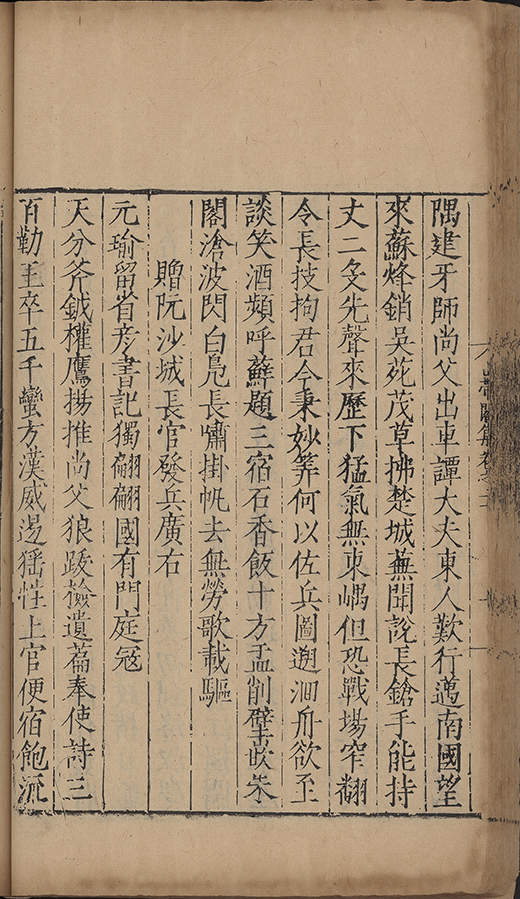 隅建牙師尚父出車譚大夫東人歎行邁南國望
來蘇烽銷吳苑茂草拂楚城蕪聞說長鎗手能持
丈二殳先聲來歷下猛氣無東嵎但恐戰場窄翻
令長技拘君今秉妙筭何以佐兵圖遡洄舟欲至
談笑酒頻呼蘚題三宿石香飯十方盂削壁嵌朱
閣滄波閃白鳧長嘯掛帆去無勞歌載驅
贈阮沙城長官發兵廣右
元瑜留省彦書記獨翩翩國有門庭冦
天分斧鉞權鷹揚推尚父狼跋撿遺篇奉使詩三
百勤王卒五千蠻方漢威逷猺性上官便宿飽流